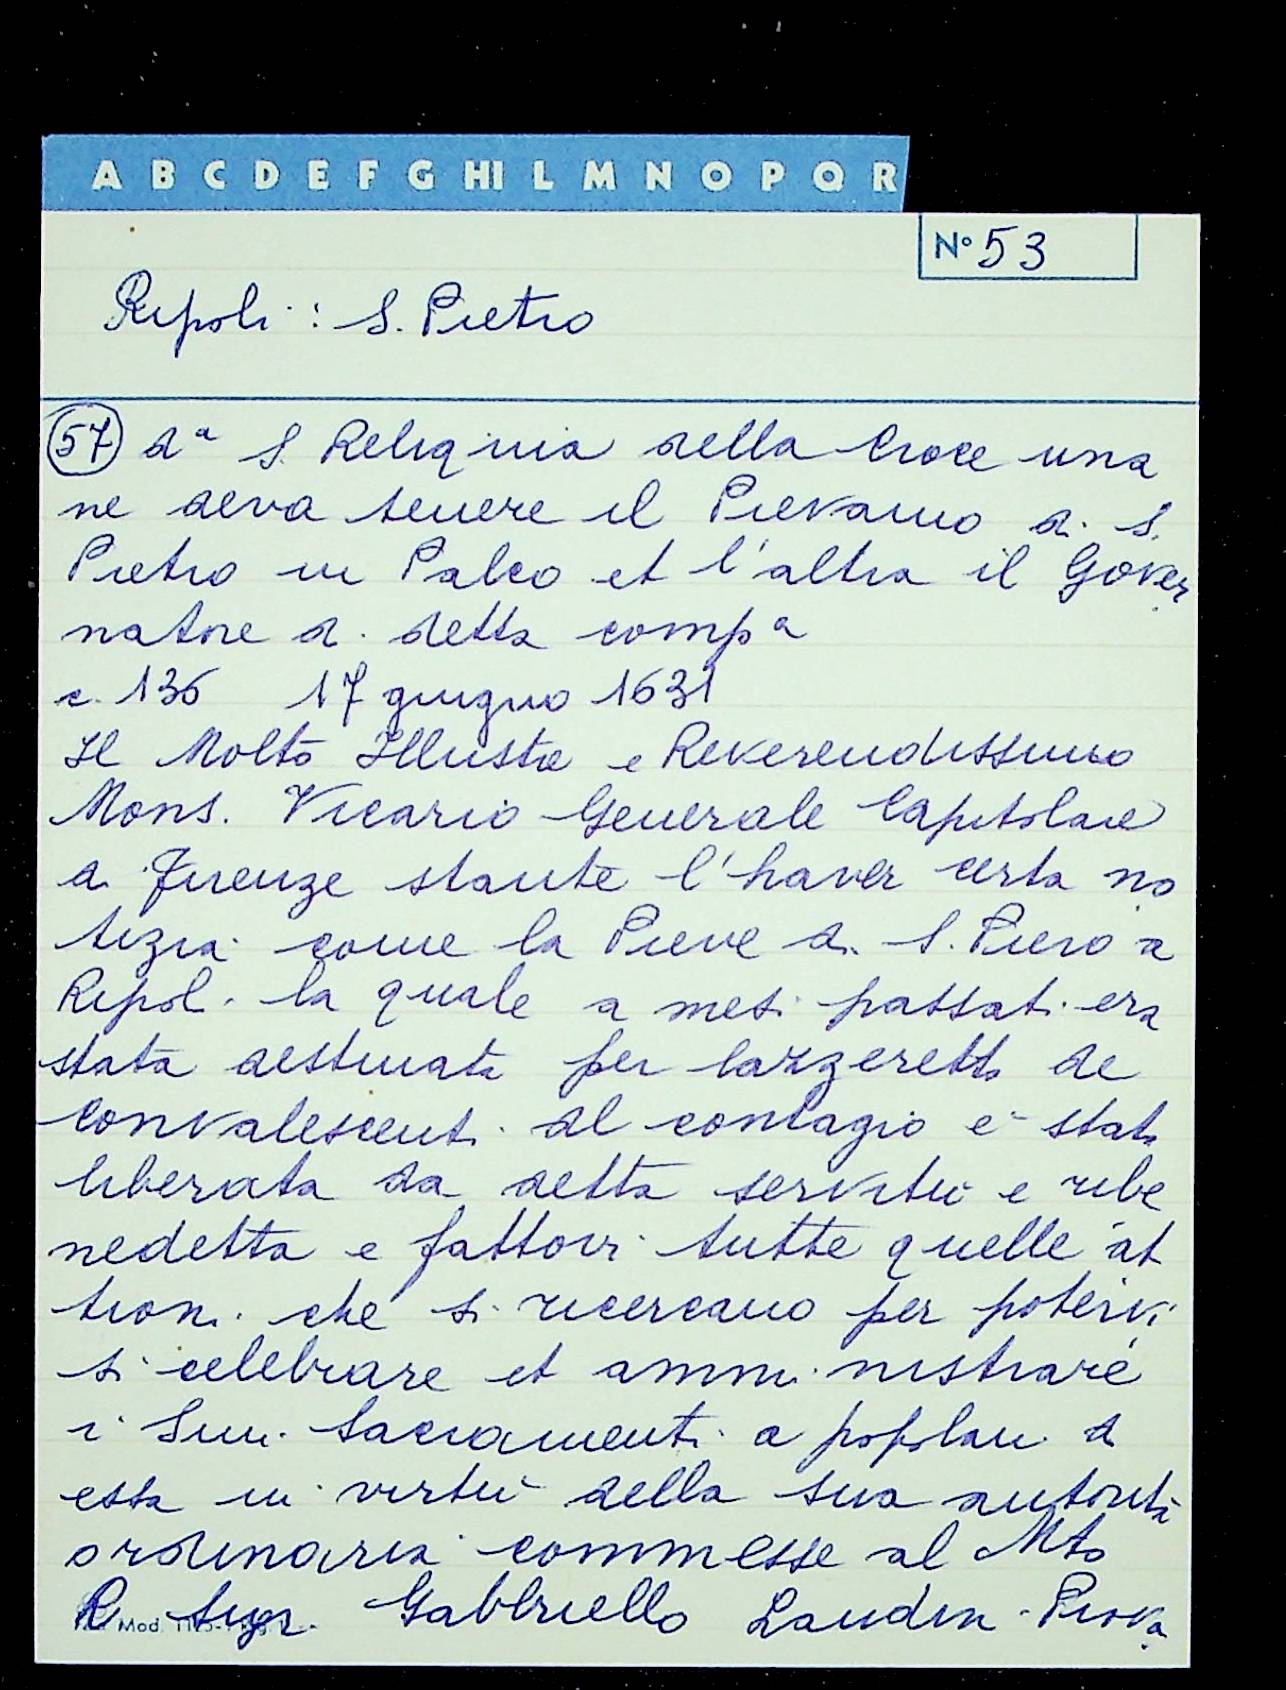 A B C D E F G HI L M N O P Q R
N° 53
Ripoli : S. Pietro
57 dª S. Reliquia della Croce una
ne deva tenere il Pievano di S.
Pietro in Palco et l'altra il Gover
natore di detta compª
c. 136 17 giugno 1631
Il Molto Illustre e Reverendissimo
Mons. Vicario Generale Capitolare
di Firenze stante l'haver certa no
tizia come la Pieve di S. Piero a
Ripoli la quale a mesi passati era
stata destinata per lazzeretto de
convalescenti al contagio è stata
liberata da detta servitù e ribe
nedetta e fattovi tutte quelle at
tioni che si ricercano per potervi
si celebrare et amministrare
i Smi. Sacramenti a popolani di
esta in virtù della sua autorità
ordinaria commesse al Mto
R Sigr. Gabbriello Landini Piova
Mod.